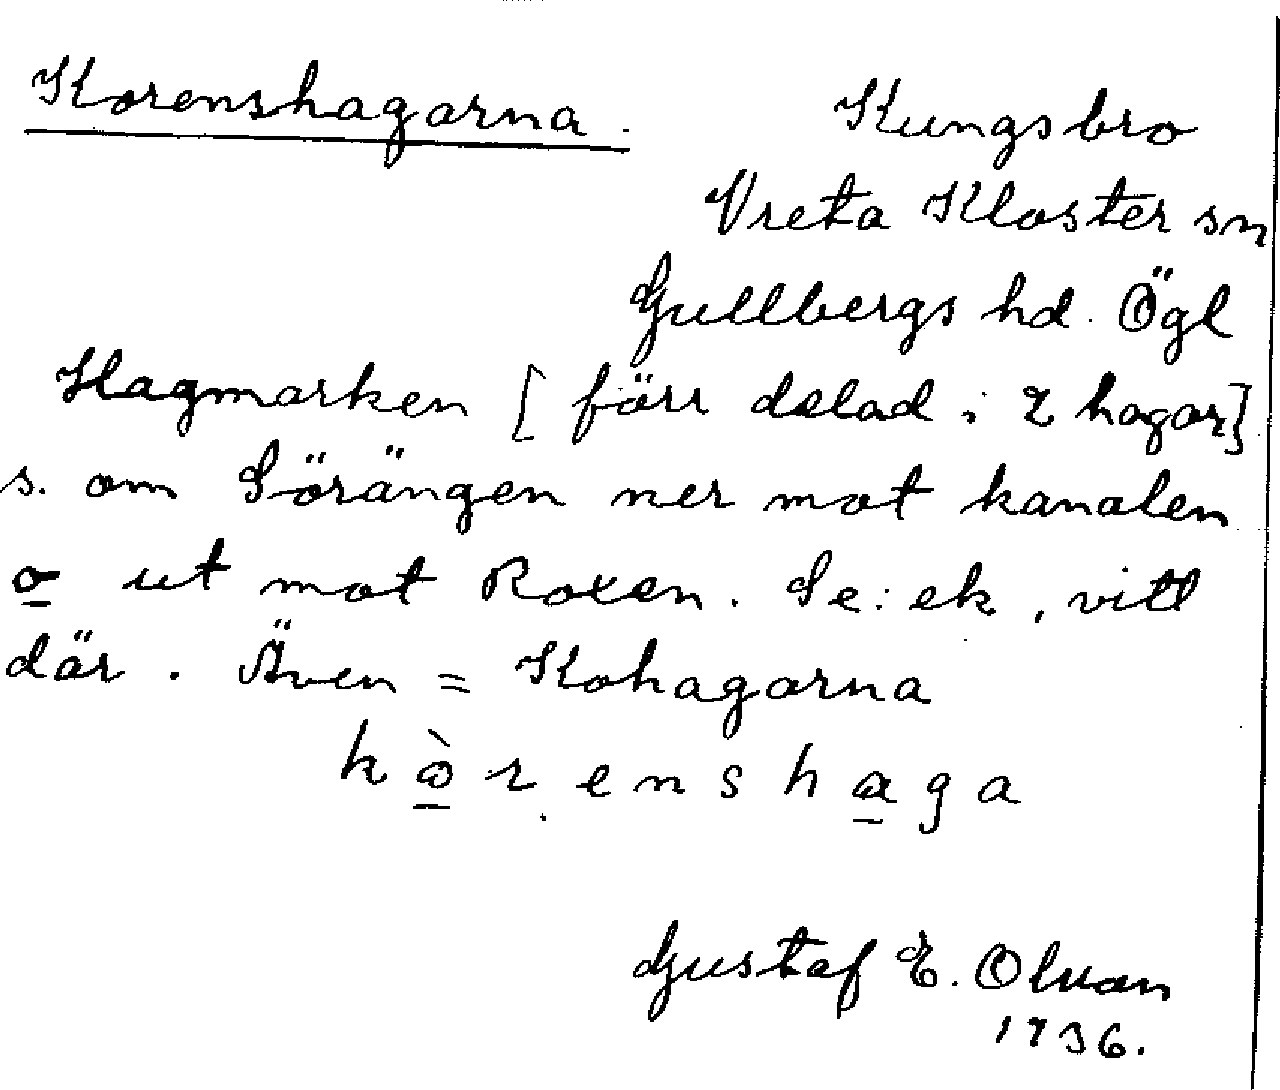 Korenshagarna.
Kungsbro
Vreta Kloster sn
Gullbergs hd. Ögl
Hagmarken [förr delad i 2 hagar]
s. om Sörängen ner mot kanalen
o ut mot Roxen. Se: ek, vitl
där. Även = Kohagarna
kòrenshaga
Gustaf E. Olson
1936.